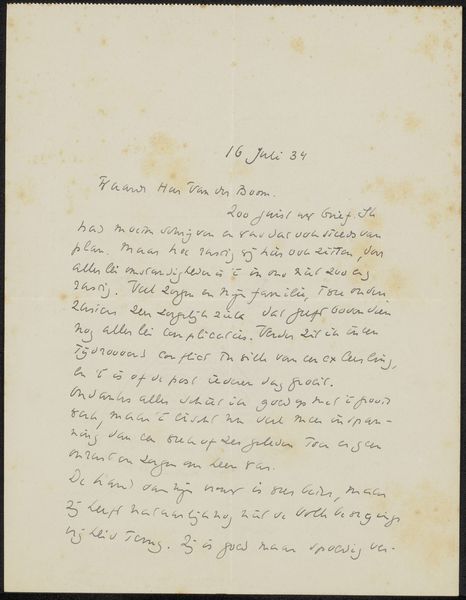 16 Juli 34
Waarde Han van der Boom.
Zoo juist uw brief. Ik
had moeten schrijven en was dat ook steeds van
plan. Maar hoe rustig wij hier ook zitten, door
allerlei omstandigheden is 't in ons niet zoo erg
rustig. Veel zorgen in mijn familie, twee
zusters zeer zorgelijk ziek dat geeft bovendien
nog allerlei complicaties. Verder zit ik in een
tijdroovend conflict ten wille van een ex leerling,
en 't is of de post iederen dag groeit.
Ondanks alles schiet ik goed op met 't
werk, maar 't eischt nu veel meer inspan-
ning dan een week of zes geleden toen er geen
onrust en zorgen om heen was.
De hand van mijn vrouw is veel beter, maar
zij heeft natuurlijk nog niet de volle bewegings
vrijheid terug. Zij is goed maar spoedig ver-